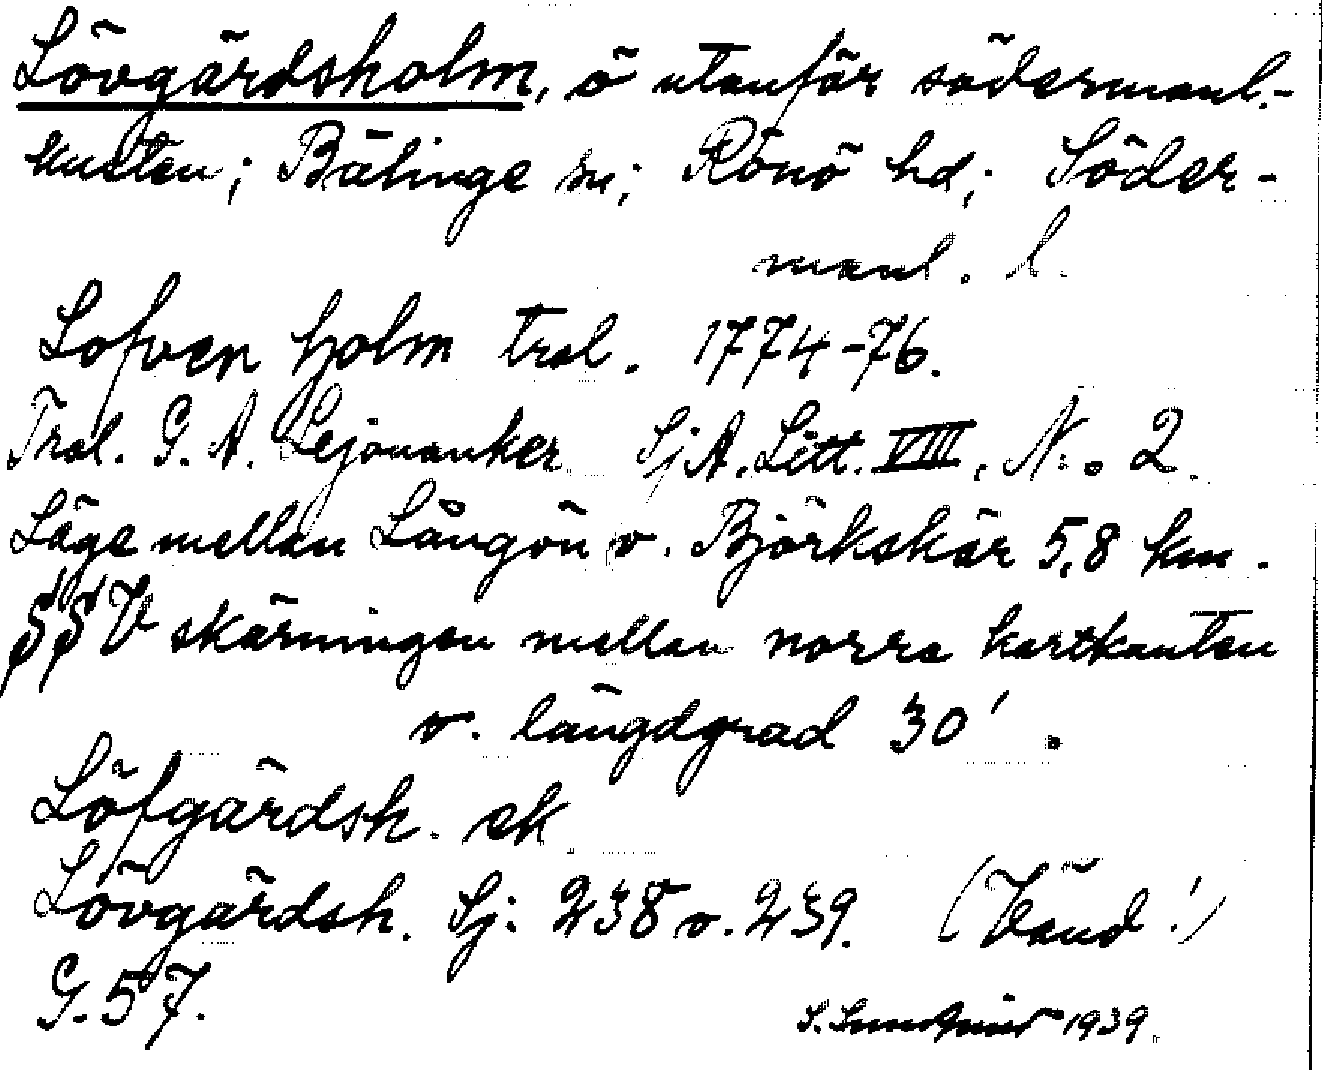 Lövgärdsholm, ö utanför södermanl.-
kusten; Bälinge sn; Rönö hd; Söder-
manl. l.
Lofven holm tral. 1774-76.
Tral. G. A. Lejonanker SjA. Litt. VIII, N:o 2.
Läge mellan Långön o. Björkskär 5,8 km.
SSV skärningen mellan norra kartkanten
o. längdgrad 30'.
Löfgärdsh. ek
Lövgärdsh. Sj: 238 o. 239. (Vänd!)
G. 57.
1939.